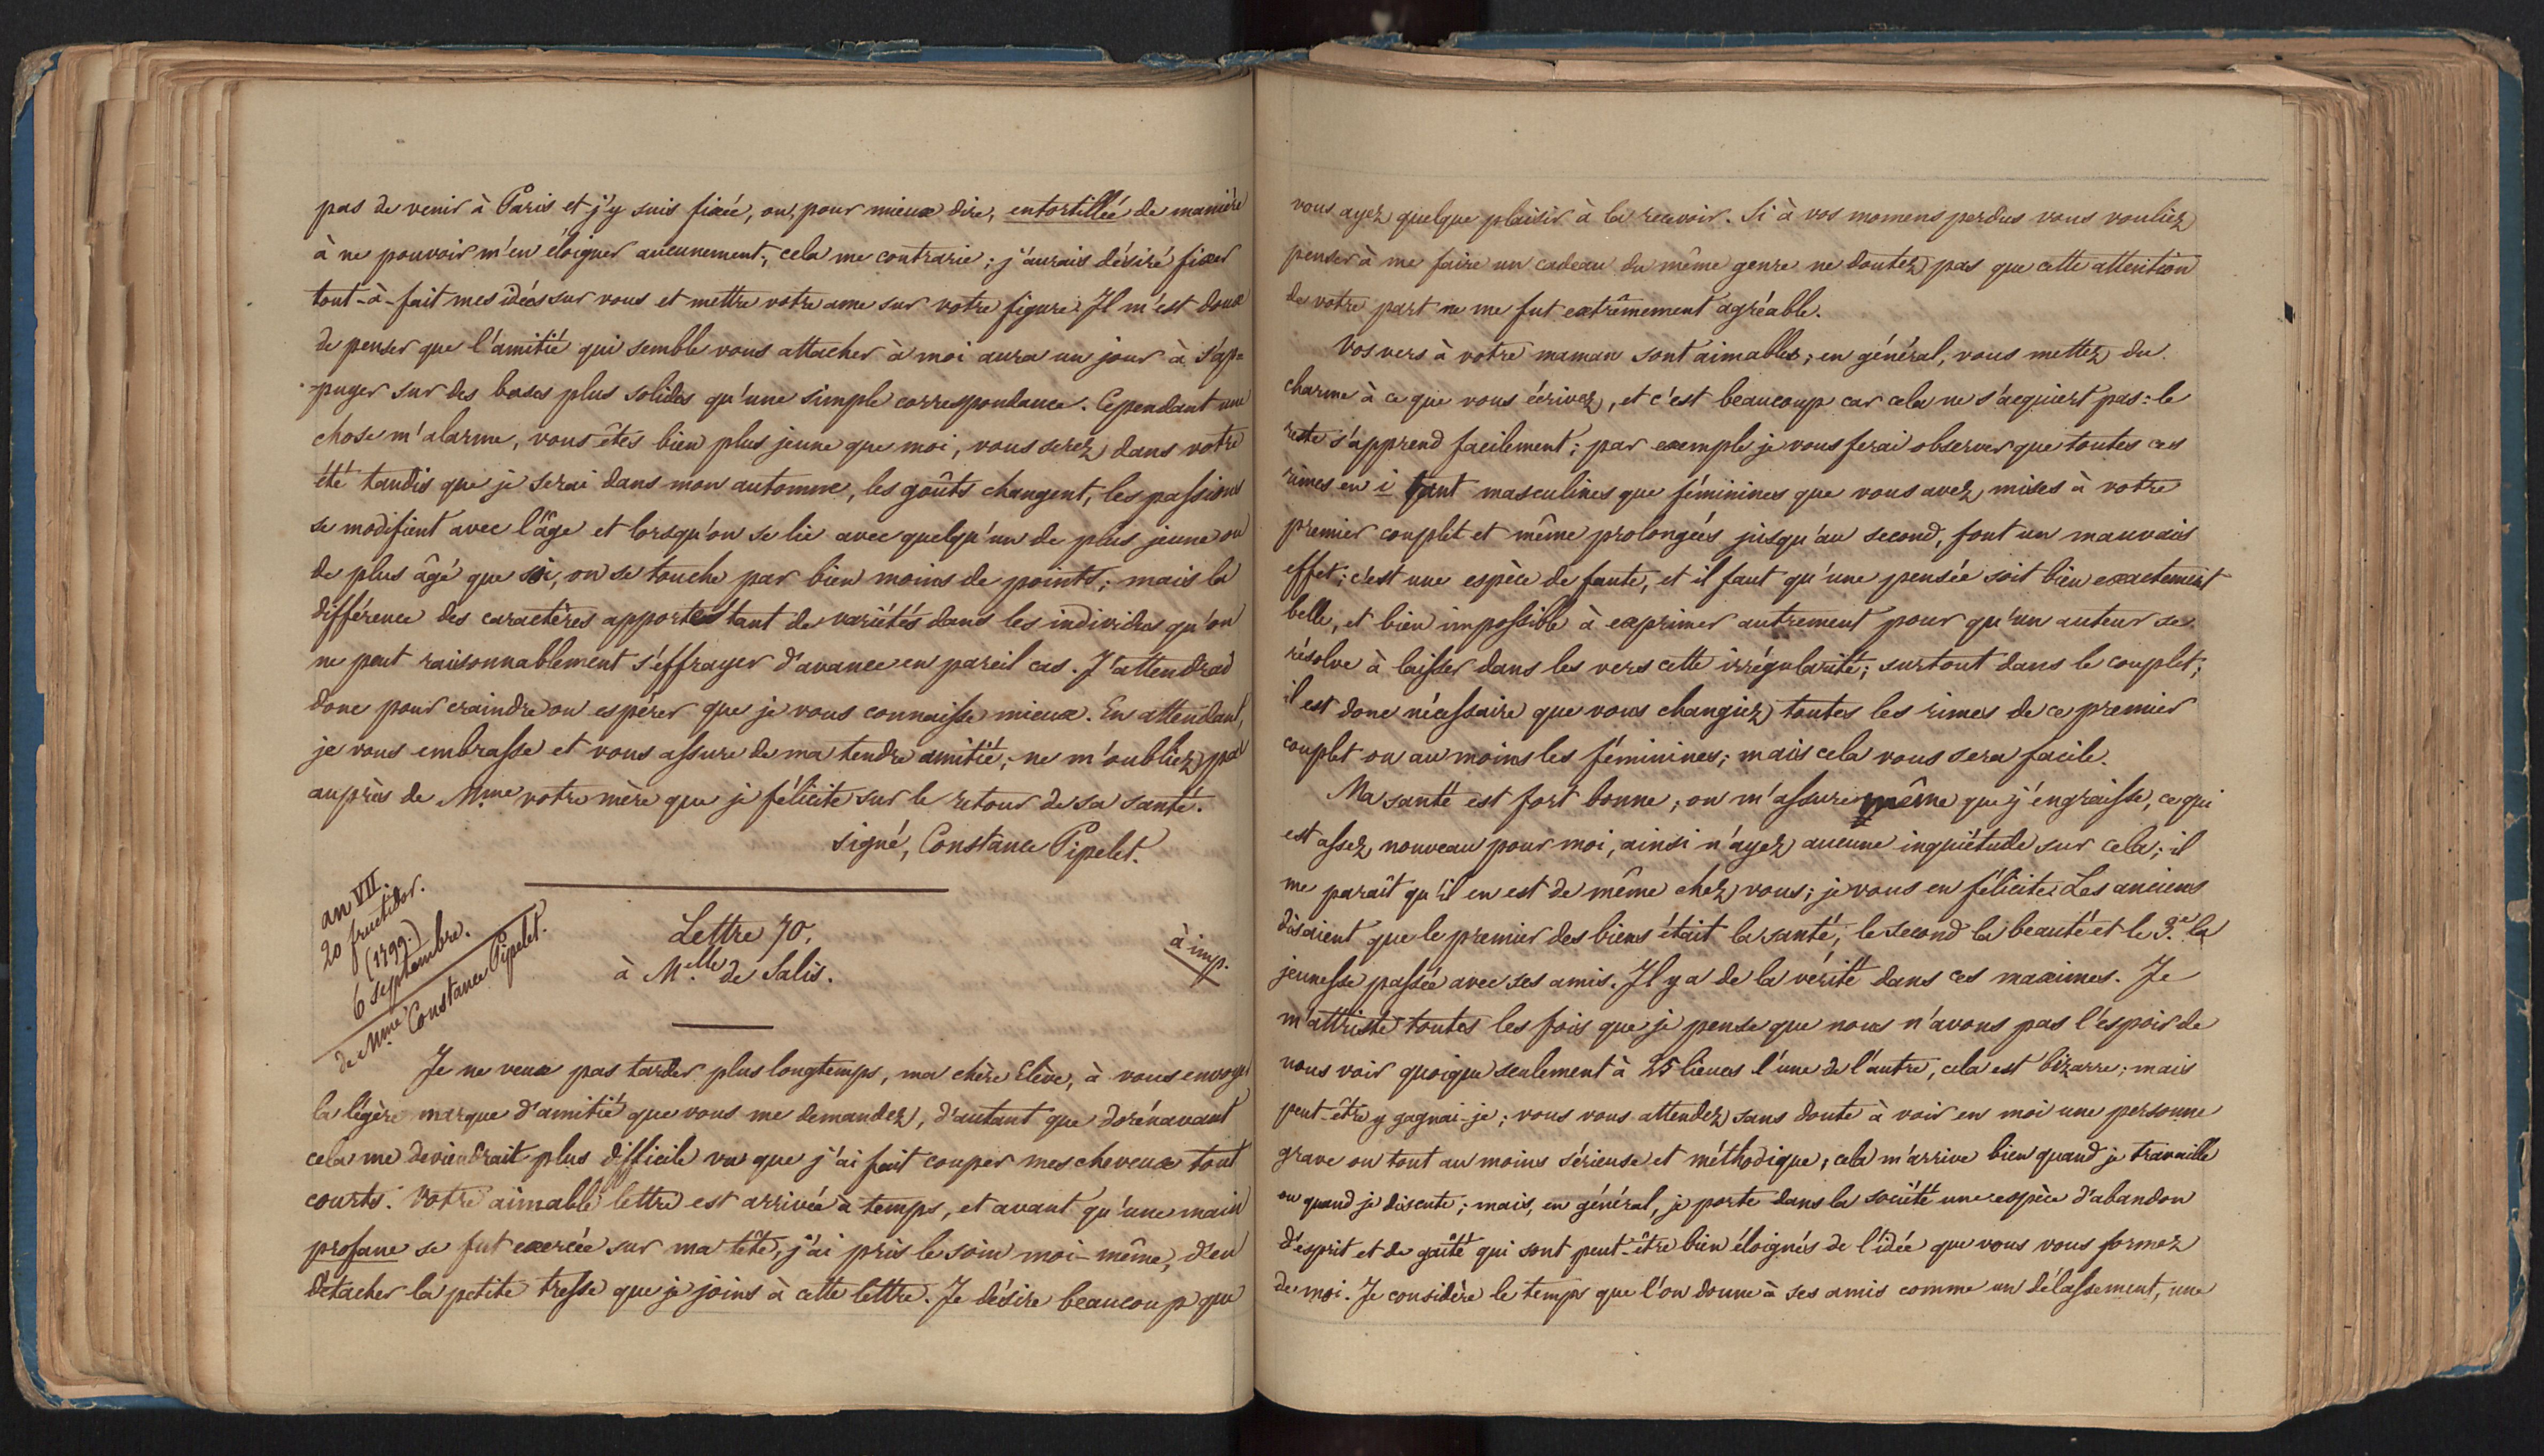 pas de venir à Paris et j'y suis fixée, ou, pour mieux dire, entortillée de manière
à ne pouvoir m'en éloigner aucunement; cela me contrarie; j'aurais désiré fixer
tout-à-fait mes idées sur vous et mettre votre ame sur votre figure. Il m'est doux
de penser que l'amitié qui semble vous attacher à moi aura un jour à s'ap-
-puyer sur des bases plus solides qu'une simple correspondance. Cependant une
chose m'alarme, vous êtes bien plus jeune que moi, vous serez dans votre
été tandis que je serai dans mon automne, les goûts changent, les passions
se modifient avec l'âge et lorsqu'on se lie avec quelqu'un de plus jeune ou
de plus âgé que soi, on se touche par bien moins de points; mais la
différence des caractères apporte tant de variétés dans les individus qu'on
ne peut raisonnablement s'effrayer d'avance en pareil cas. J'attendrai
donc pour craindre ou espérer que je vous connaisse mieux. En attendant,
je vous embrasse et vous assure de ma tendre amitié; ne m'oubliez pas
auprès de Mme votre mère que je félicite sur le retour de sa santé.
signé, Constance Pipelet.
an VII.
20 fructidor.
(1799.)
6 septembre.
de Mme Constance Pipelet.
Lettre 70.
à Melle de Salis.
à imp.
Je ne veux pas tarder plus longtemps, ma chère Elève, à vous envoyer
la légère marque d'amitié que vous me demandez, d'autant que dorénavant
cela me deviendrait plus difficile vu que j'ai fait couper mes cheveux tout
courts. Votre aimable lettre est arrivée à temps, et avant qu'une main
profane se fut exercée sur ma tête, j'ai pris le soin moi-même, d'en
détacher la petite tresse que je joins à cette lettre. Je désire beaucoup que
vous ayez quelque plaisir à la recevoir. Si à vos momens perdus vous vouliez
penser à me faire un cadeau du même genre ne doutez pas que cette attention
de votre part ne me fut extrêmement agréable.
Vos vers à votre maman sont aimables; en général, vous mettez du
charme à ce que vous écrivez, et c'est beaucoup car cela ne s'acquiert pas: le
reste s'apprend facilement; par exemple je vous ferai observer que toutes ces
rimes en i tant masculines que féminines que vous avez mises à votre
premier couplet et même prolongées jusqu'au second, font un mauvais
effet; c'est une espèce de faute, et il faut qu'une pensée soit bien exactement
belle, et bien impossible à exprimer autrement pour qu'un auteur se
résolve à laisser dans les vers cette irrégularité; surtout dans le couplet;
il est donc nécessaire que vous changiez toutes les rimes de ce premier
couplet ou au moins les féminines; mais cela vous sera facile.
Ma santé est fort bonne; on m'assure même que j'engraisse, ce qui
est assez nouveau pour moi, ainsi n'ayez aucune inquiétude sur cela; il
me paraît qu'il en est de même chez vous; je vous en félicite. Les anciens
disaient que le premier des biens était la santé; le second la beauté et le 3e la
jeunesse passée avec ses amis. Il y a de la vérité dans ces maximes. Je
m'attriste toutes les fois que je pense que nous n'avons pas l'espoir de
nous voir quoique seulement à 25 lieues l'une de l'autre, cela est bizarre; mais
peut-être y gagnai-je; vous vous attendez sans doute à voir en moi une personne
grave ou tout au moins sérieuse et méthodique; cela m'arrive bien quand je travaille
ou quand je discute; mais, en général, je porte dans la société une espèce d'abandon
d'esprit et de gaîté qui sont peut-être bien éloignés de l'idée que vous vous formez
de moi. Je considère le temps que l'on donne à ses amis comme un délassement, une